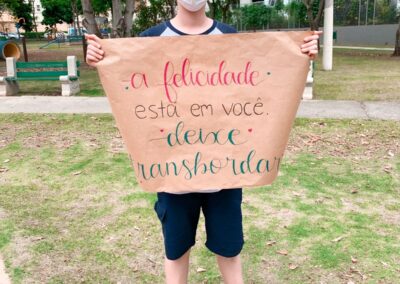 a felicidade
está em você.
deixe
transbordar